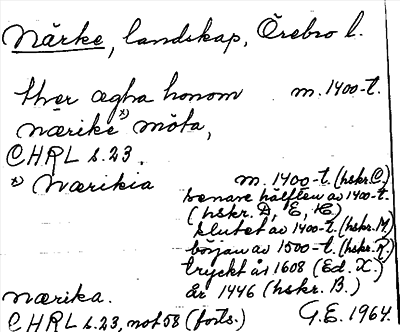 Närke, landskap, Örebro l.
thær ægha honom m. 1400-t.
nærike x) möta,
CHRL s.23.
x) Nærikia m. 1400-t. (hskr. C)
senare hälften av 1400-t.
(hskr. D, E, K)
slutet av 1400-t. (hskr. M)
början av 1500-t. (hskr. N.)
tryckt år 1608 (Ed. X.)
nærika. år 1446 (hskr. B.)
CHRL s.23, not 58 (forts.) G.E. 1964.